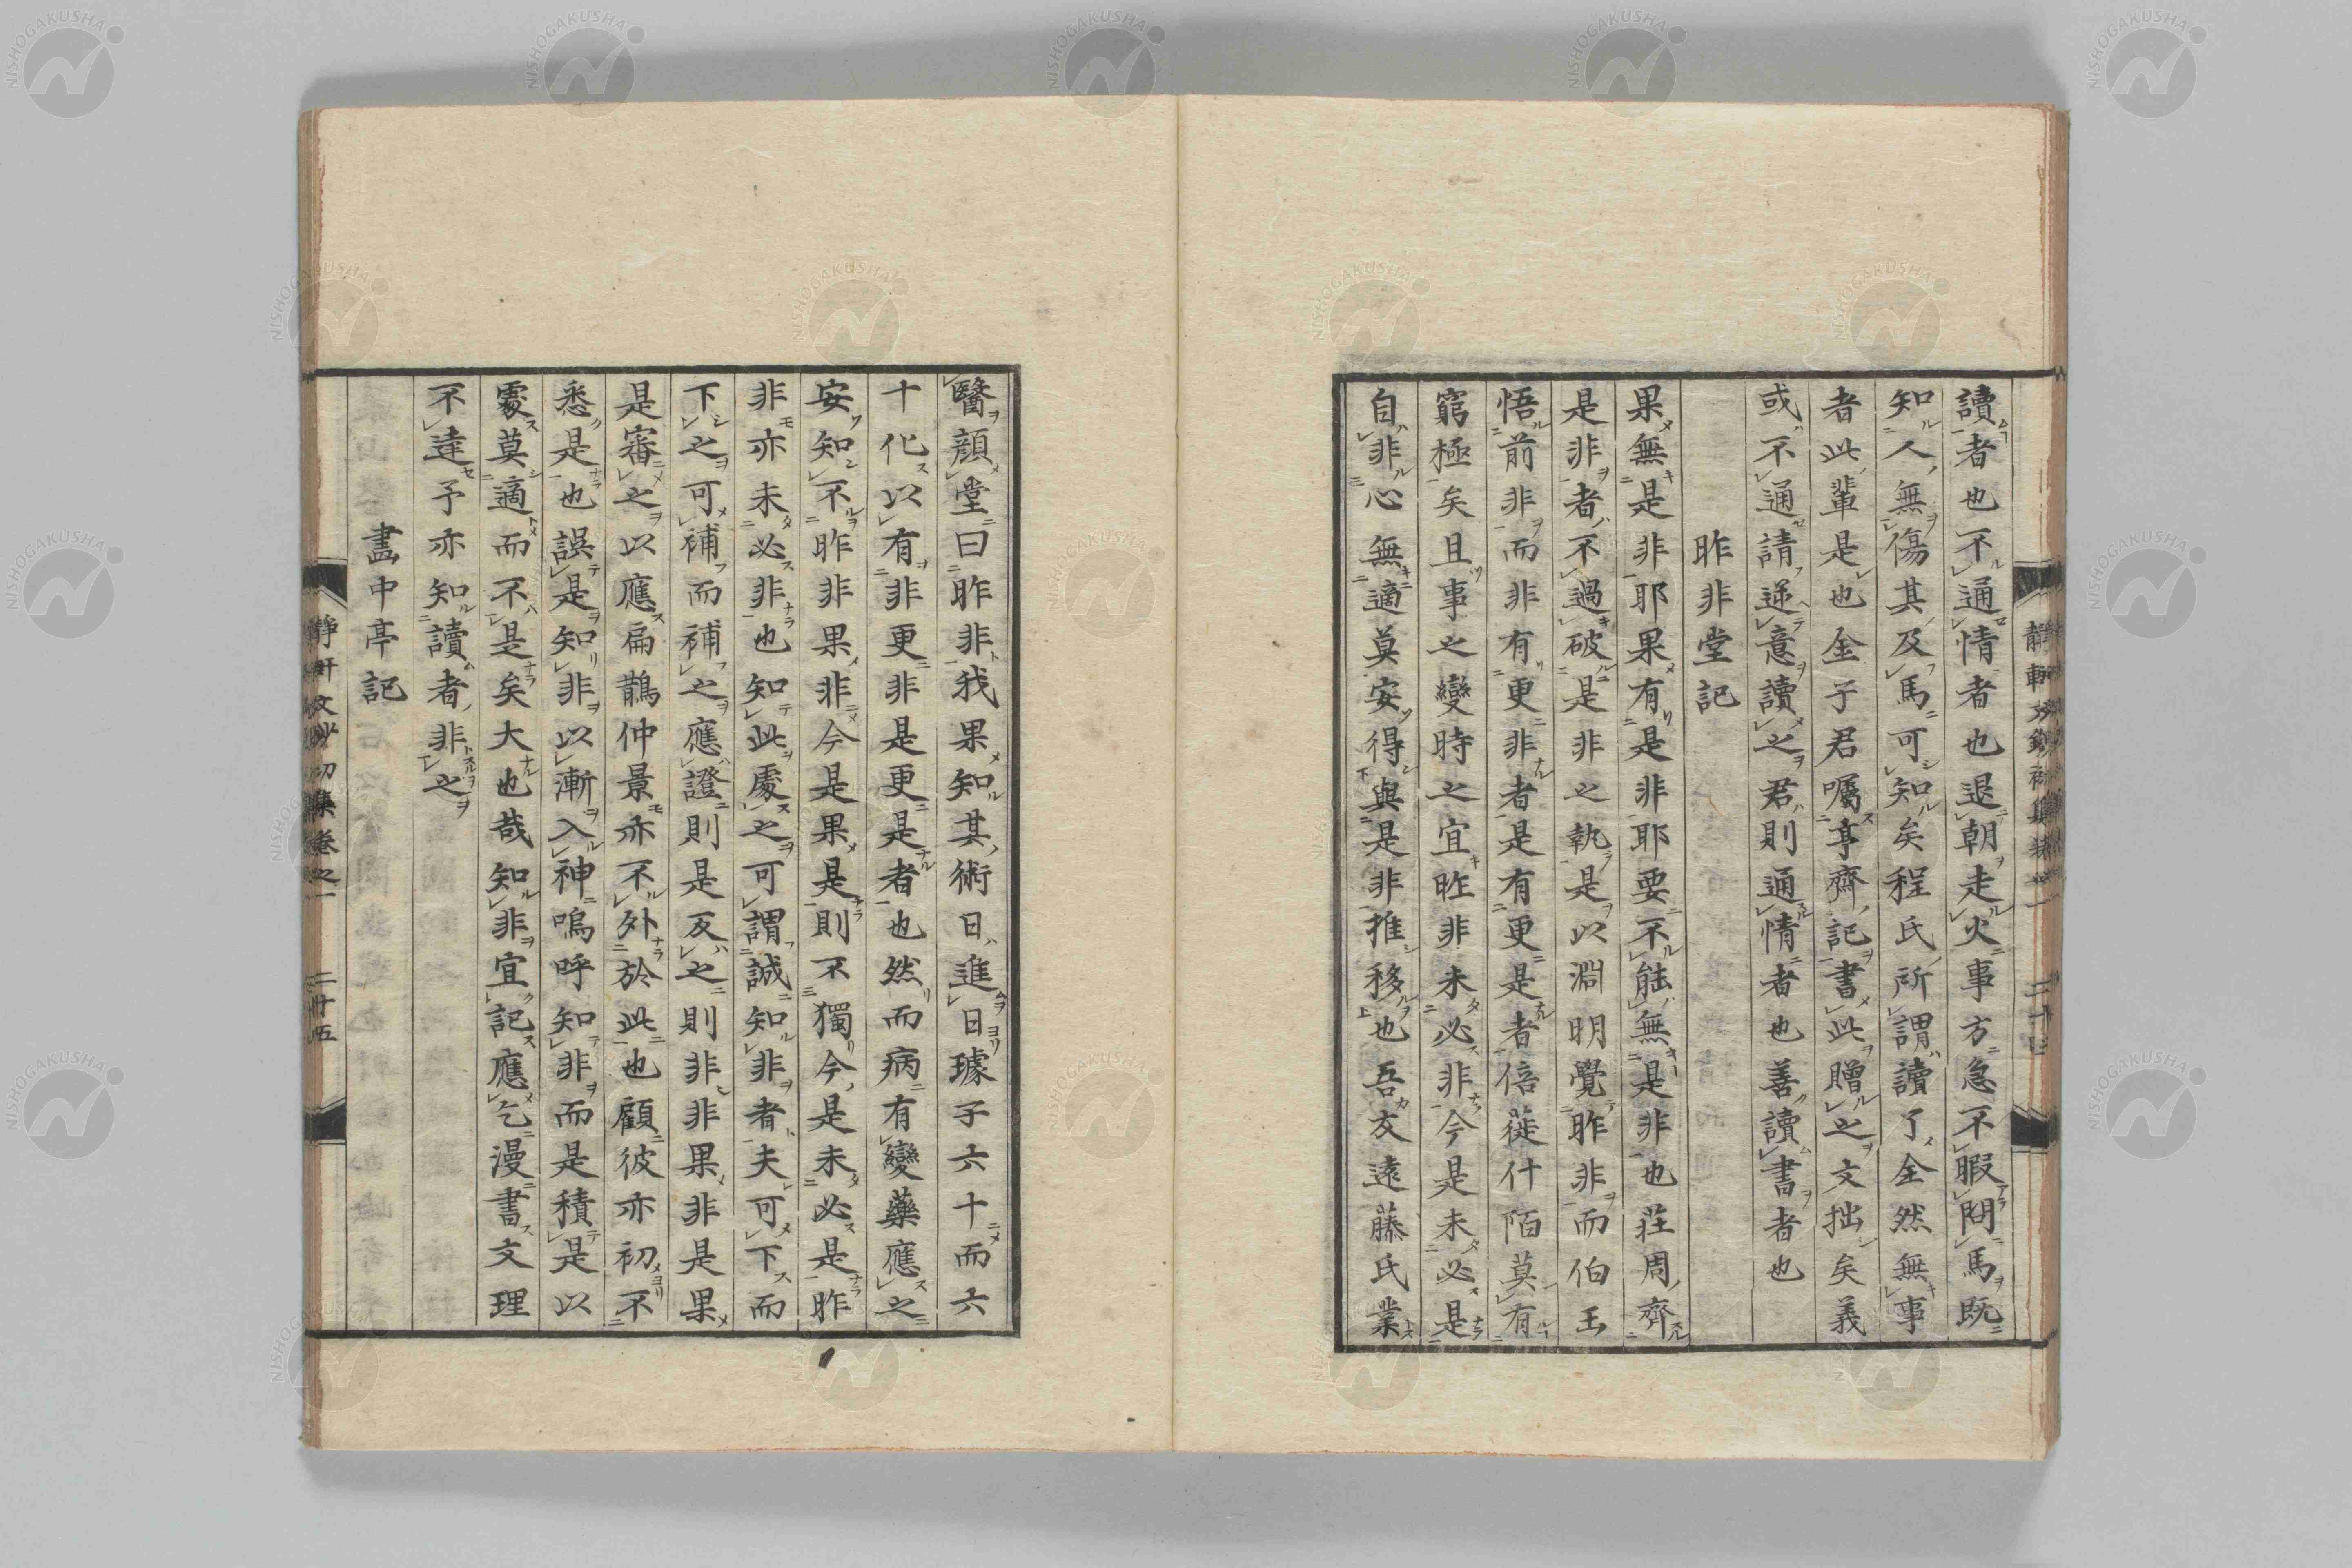 讀者也不通情者也退朝走火事方急不暇問馬既
知人無傷其及馬可知矣程氏所謂讀了全然無事
者此輩是也金子君囑亭齋記書此贈之文拙矣義
或不通請逆意讀之君則通情者也善讀書者也
昨非堂記
果無是非耶果有是非耶要不能無是非也莊周齊
是非者不過破是非之執是以淵明覺昨非而伯玉
悟前非而非有更非者是有更是者倍蓰什陌莫有
窮極矣且事之變時之宜昨非未必非今是未必是
自非心無適莫安得與是非推移也吾友遠藤氏業
醫顏堂曰昨非我果知其術日進日璩子六十而六
十化以有非更非是更是者也然而病有變藥應之
安知不昨非果非今是果是則不獨今是未必是昨
非亦未必非也知此處之可謂誠知非者夫可下而
下之可補而補之應證則是反之則非非果非是果
是審之以應扁鵲仲景亦不外於此也顧彼亦初不
悉是也誤是知非以漸入神嗚呼知非而是積是以
處莫適而不是矣大也哉知非宜記應乞漫書文理
不達予亦知讀者非之
畫中亭記
靜軒文鈔初集卷之一 二十五
NISHOGAKUSHA